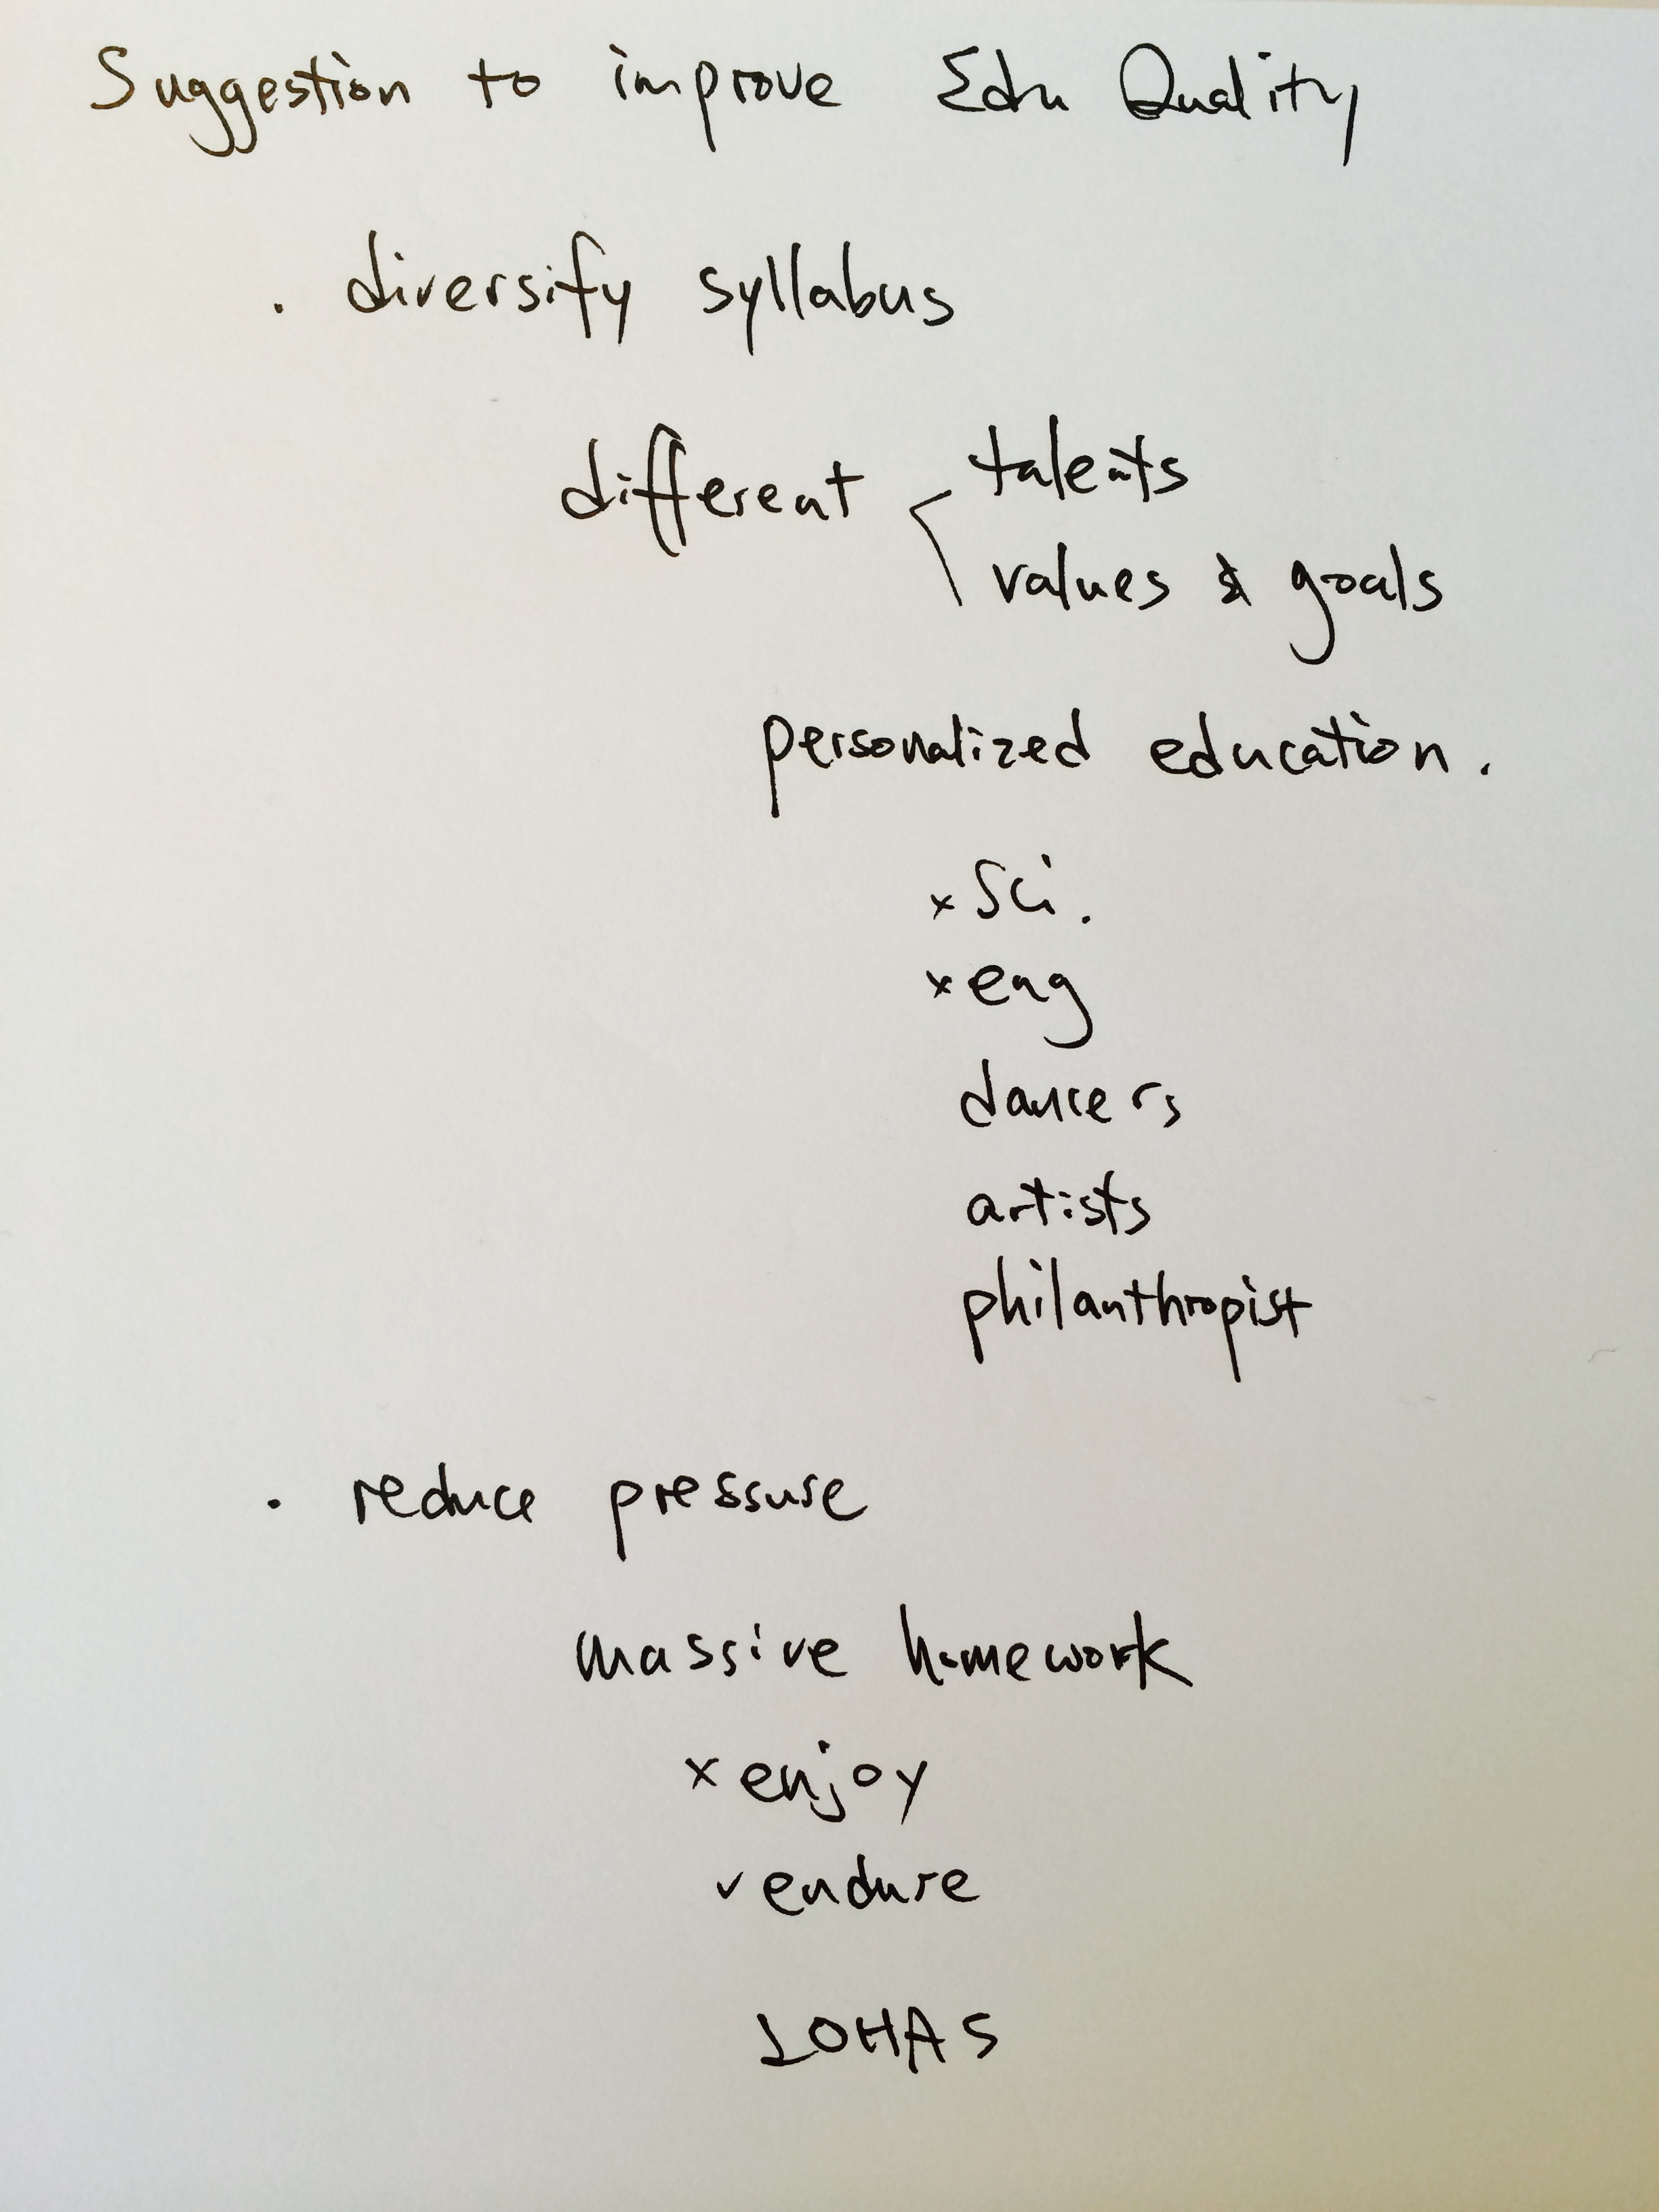 Suggestion to improve Edu Quality
. diversify syllabus
different < talents
values & goals
personalized education.
x sci.
x eng
dancers
artists
philanthropist
. reduce pressure
massive homework
x enjoy
✓ endure
LOHAS